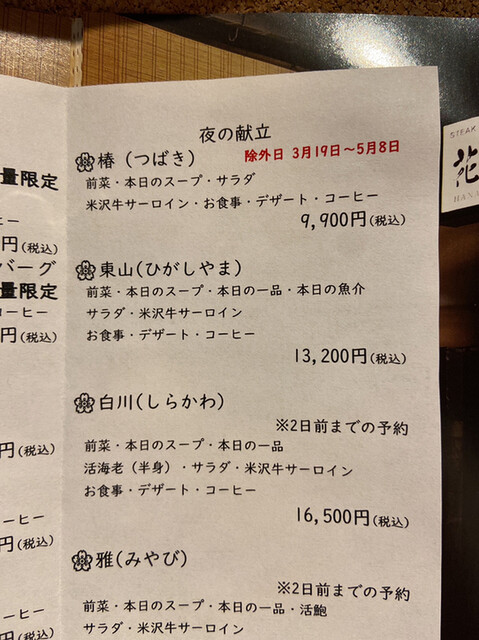 夜の献立
椿（つばき）
除外日 3月19日～5月8日
前菜・本日のスープ・サラダ
米沢牛サーロイン・お食事・デザート・コーヒー
9,900円(税込)
東山(ひがしやま)
前菜・本日のスープ・本日の一品・本日の魚介
サラダ・米沢牛サーロイン
お食事・デザート・コーヒー
13,200円(税込)
白川(しらかわ)
※2日前までの予約
前菜・本日のスープ・本日の一品
活海老（半身）・サラダ・米沢牛サーロイン
お食事・デザート・コーヒー
16,500円(税込)
雅(みやび)
※2日前までの予約
前菜・本日のスープ・本日の一品・活鮑
サラダ・米沢牛サーロイン
量限定
ーヒー
円(税込)
バーグ
量限定
コーヒー
円(税込)
円(税込)
ーヒー
円(税込)
ーヒー
円(税込)
STEAK
花
HANA